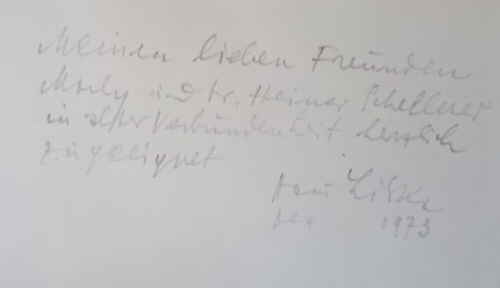 Meinen lieben Freunden
und Dr. Heiner Schellner
in alter Verbundenheit herzlich
zugeeignet
Hans Liska
1973